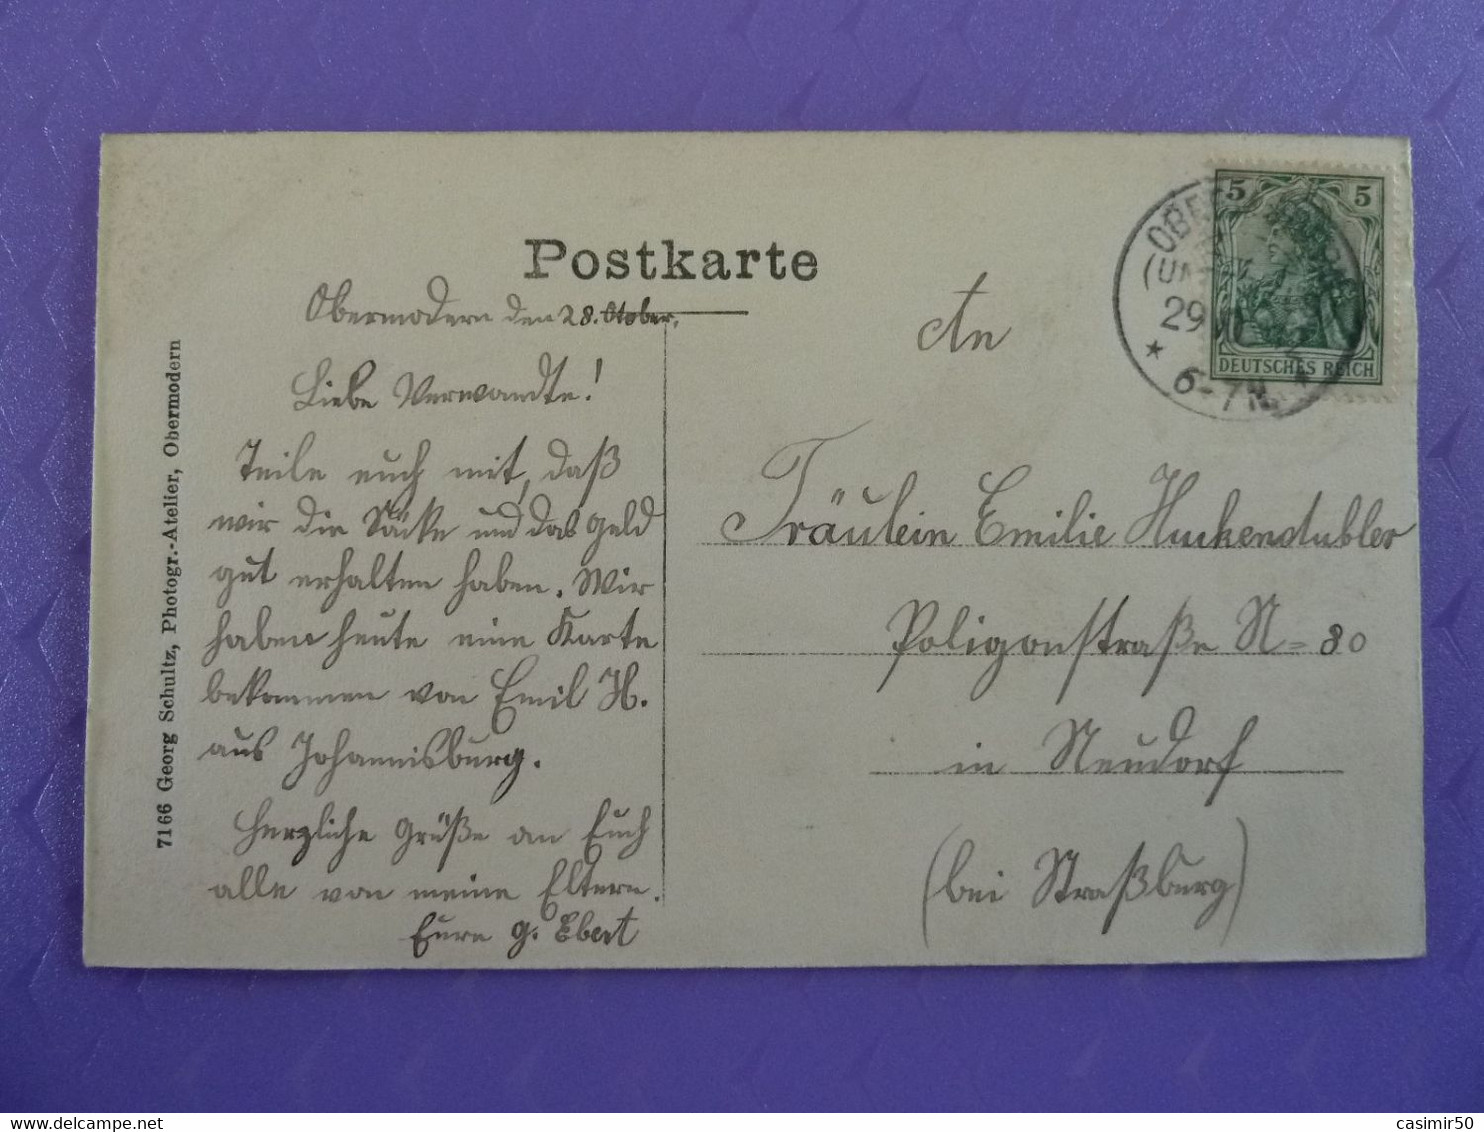 Postkarte
Obermodern den 28. Otober.
Liebe Verwandte!
Teile euch mit, daß
wir die Säcke und das Geld
gut erhalten haben. Wir
haben heute eine Karte
bekommen von Emil H.
aus Johannisburg.
Herzliche Grüße an Euch
alle von meine Eltern.
Eure G. Ebert
7166 Georg Schultz, Photogr.-Atelier, Obermodern
An
Fräulein Emilie Huckendubler
Poligonstraße N= 80
in Neudorf
(bei Straßburg)
5 5
DEUTSCHES REICH
29
* 6-7N. *
delcampe.net
casimir50